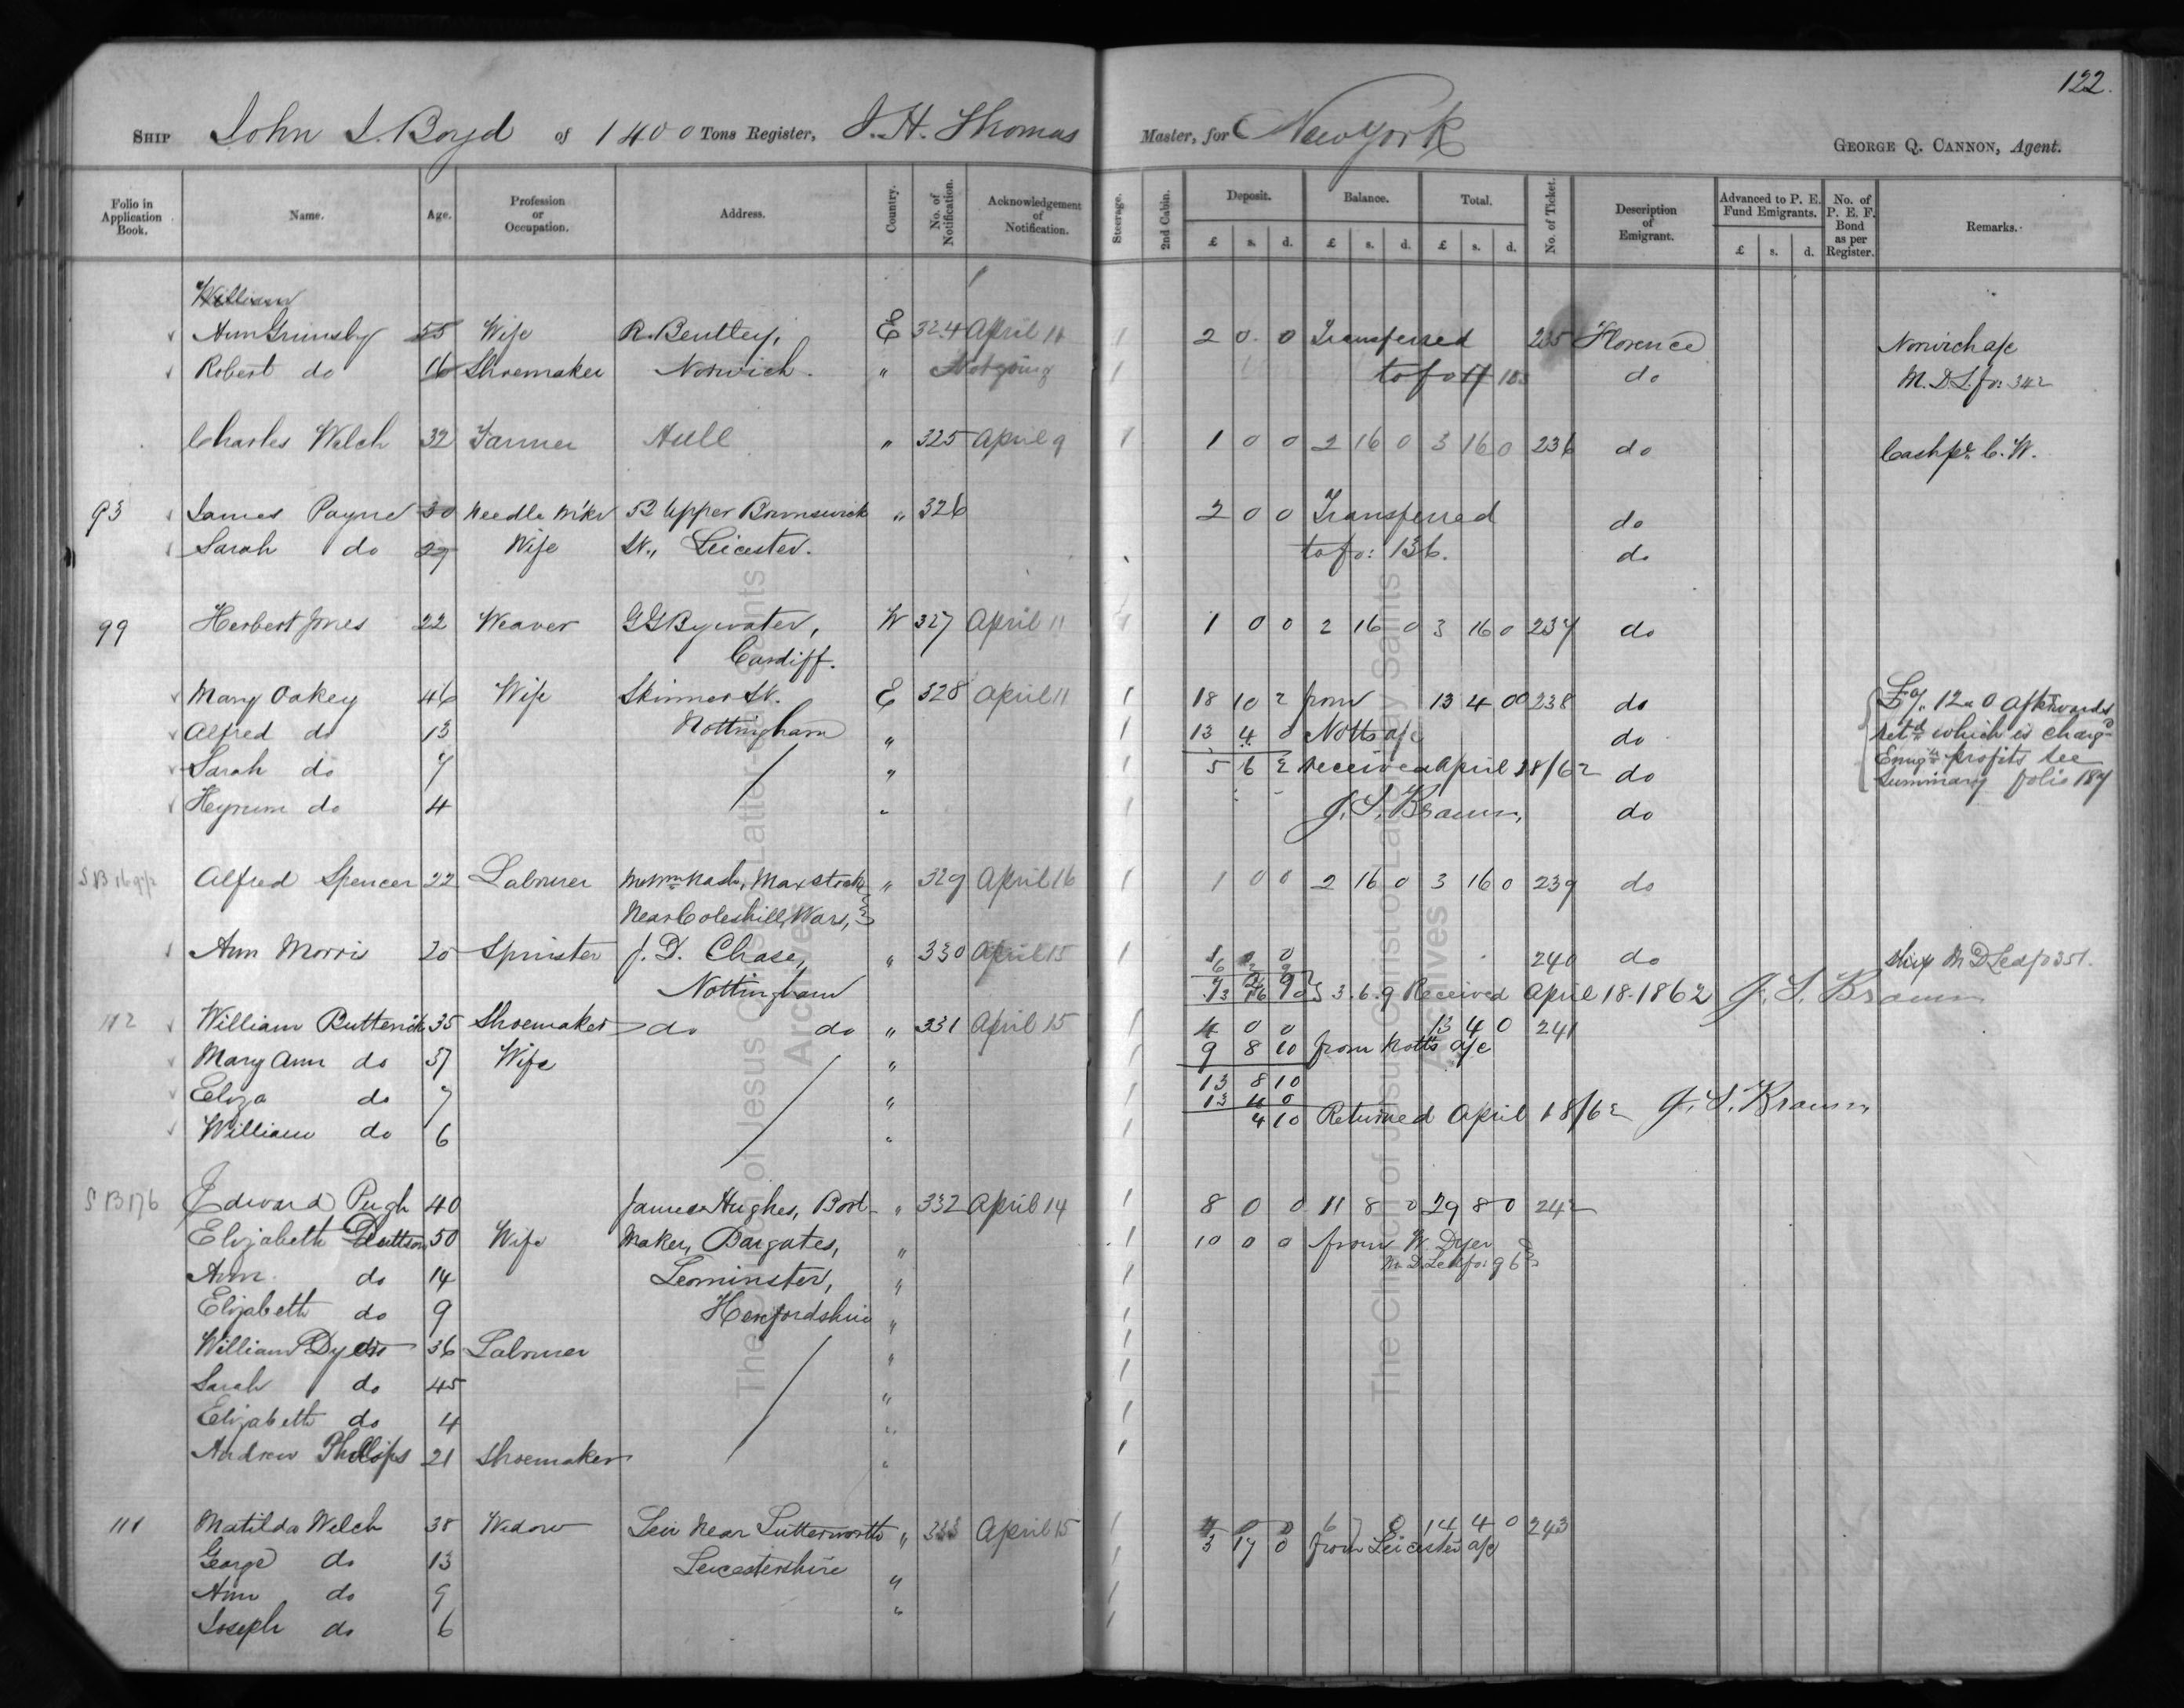 122.
SHIP John J. Boyd of 1400 Tons Register, J. H. Thomas Master, for New York GEORGE Q. CANNON, Agent.
Folio in Application Book. Name. Age. Profession or Occupation. Address. Country. No. of Notification. Acknowledgement of Notification. Steerage. 2nd Cabin. Deposit. Balance. Total. No. of Ticket. Description of Emigrant. Advanced to P. E. Fund Emigrants. No. of P. E. F. Bond as per Register. Remarks.
£ s. d. £ s. d. £ s. d. £ s. d.
William
Ann Grimsby 55 Wife R. Bentley, E 324 April 11 1 2 0 0 Transferred 235 Florence Norwich a/c
Robert do 16 Shoemaker Norwich. " Not going 1 to fo do M. D. L. fo: 342
Charles Welch 32 Farmer Hull " 325 April 9 1 1 0 0 2 16 0 3 16 0 236 do Cash pr. C. W.
93 James Payne 30 Needle Mkr 52 Upper Brunswick " 326 2 0 0 Transferred do
Sarah do 29 Wife St., Leicester. to fo: 136. do
99 Herbert Jones 22 Weaver G G Bywater, W 327 April 11 1 1 0 0 2 16 0 3 16 0 237 do
Cardiff.
Mary Oakey 46 Wife Skinner St. E 328 April 11 1 18 10 2 from 13 4 0 238 do afterwards
Alfred do 13 Nottingham " 1 13 4 0 Notts a/c do retd which is chargd
Sarah do 7 " 1 5 6 2 received April 28/62 do Emigtn profits see
Heyrum do 4 " 1 J. S. Brown, do Summary folio 187
S B 169 Alfred Spencer 22 Labourer Nash, Maxstoke " 329 April 16 1 1 0 0 2 16 0 3 16 0 239 do
Near Coleshill, Wars,
Ann Morris 20 Spinster J. D. Chase, " 330 April 15 1 1 0 0 240 do M D Led fo 351.
Nottingham 3. 6. 9 Received April 18. 1862 J. S. Brown
112 William Butterick 35 Shoemaker do do " 331 April 15 1 4 0 0 13 4 0 241
Mary Ann do 37 Wife " 1 9 8 10 from Notts a/c
Eliza do 7 " 1 13 8 10
13 4 0
William do 6 " 1 4 10 Returned April 18/62 J. S. Brown,
S B 176 Edward Pugh 40 James Hughes, Boot " 332 April 14 1 8 0 0 11 8 0 29 8 0 242
Elizabeth Dutson 50 Wife Maker, Bargates, " 1 10 0 0 from W. Dyer
Ann do 14 Leominster, " 1 M. D. Led fo: 96
Elizabeth do 9 Herefordshire " 1
William Dyer 36 Labourer " 1
Sarah do 45 " 1
Elizabeth do 4 " 1
Andrew Phillips 21 Shoemaker " 1
111 Matilda Welch 38 Widow Leir Near Lutterworth " 333 April 15 1 4 0 0 6 7 0 14 4 0 243
George do 13 Leicestershire " 1 3 17 0 from Leicester a/c
Ann do 9 " 1
Joseph do 6 1
The Church of Jesus Christ of Latter-day Saints
Archives
The Church of Jesus Christ of Latter-day Saints
Archives